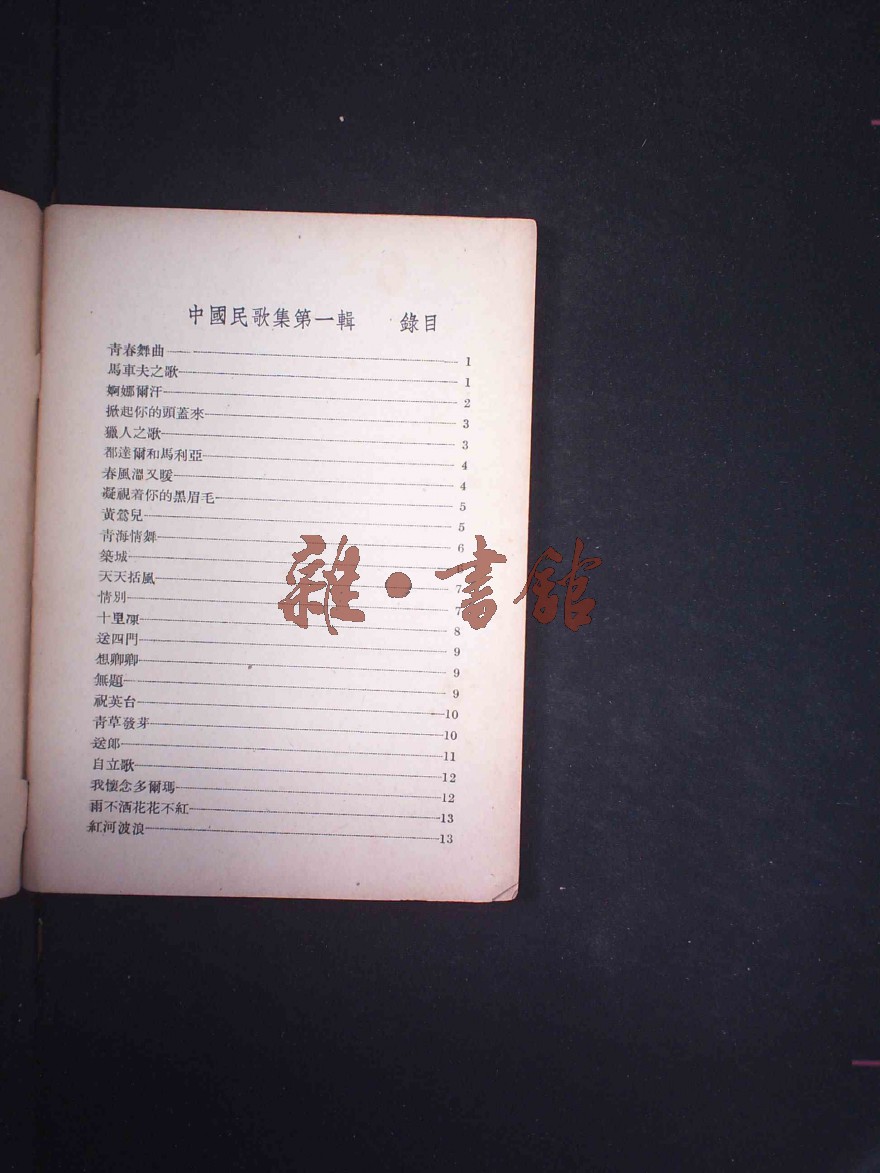 中國民歌集第一輯 錄目
青春舞曲 1
馬車夫之歌 1
婀娜爾汗 2
掀起你的頭蓋來 3
獵人之歌 3
都達爾和馬利亞 4
春風溫又暖 4
凝視着你的黑眉毛 5
黃鶯兒 5
青海情舞 6
築城
天天括風 7
情別 7
十里凍 8
送四門 9
想卿卿 9
無題 9
祝英台 10
青草發芽 10
送郎 11
自立歌 12
我懷念多爾瑪 12
雨不洒花花不紅 13
紅河波浪 13
雜·書館